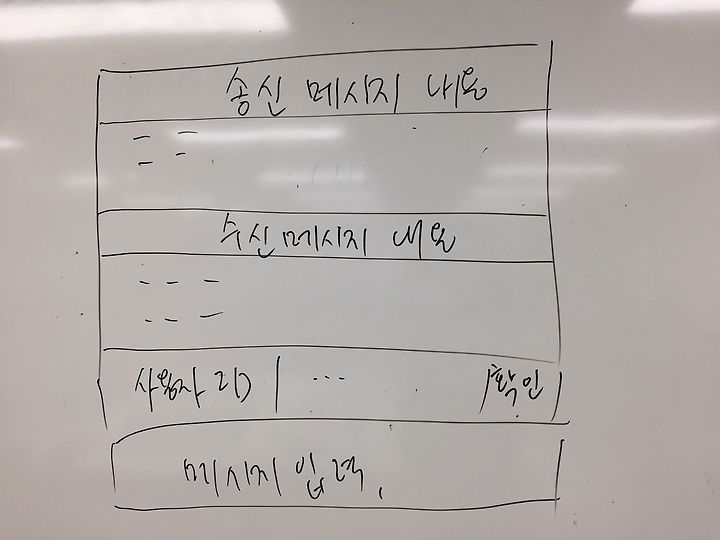 송신 메시지 내용
수신 메시지 내용
사용자 ID ... 확인
메시지 입력